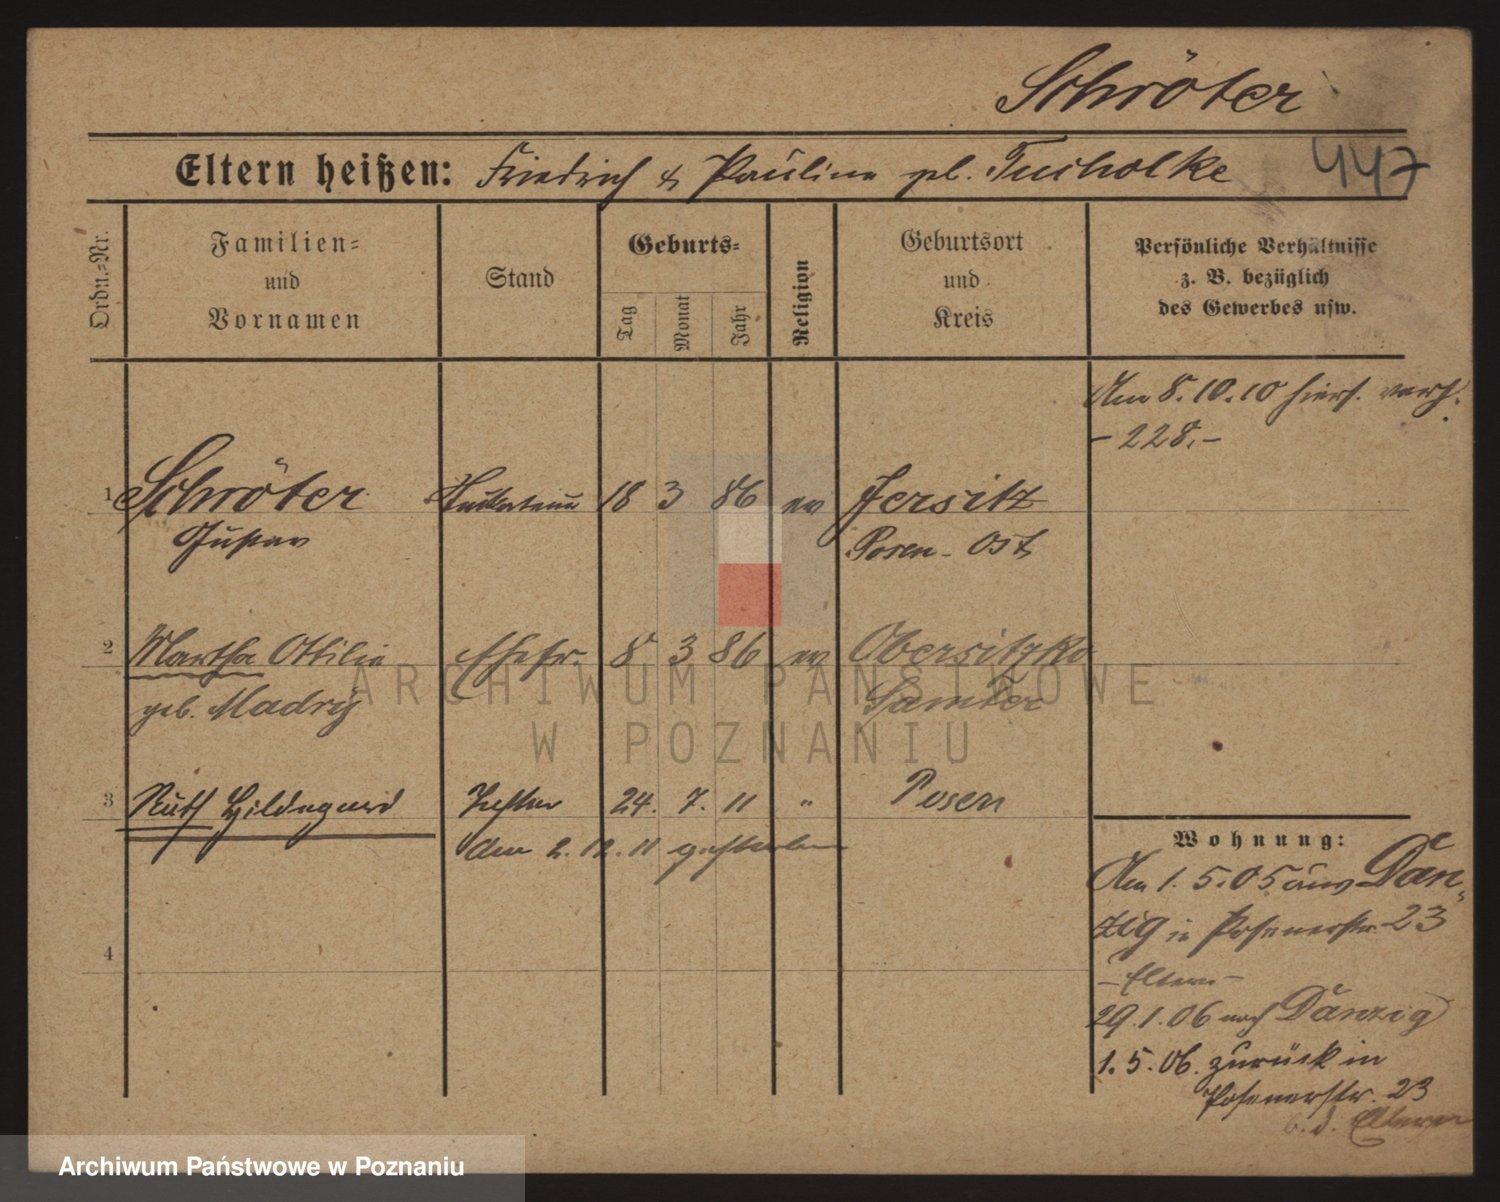 Schröter
Eltern heißen: Friedrich & Pauline gb. Tucholke
447
Ordn.=Nr.
Familien=
und
Vornamen
Stand
Geburts=
Tag
Monat
Jahr
Religion
Geburtsort
und
Kreis
Persönliche Verhältnisse
z. B. bezüglich
des Gewerbes usw.
Am 8.10.10 hiers. verh.
- 228.-
1 Schröter 18 3 86 ev Jersitz
Gustav Posen - Ost
2 Martha Ottilie Ehefr. 8 3 86 ev Obersitzko
geb. Madrij Samter
3 Ruth Hildegard Tochter 24. 7. 11 " Posen
den 2.12.11 gestorben
4
Wohnung:
Am 1.5.05 aus Dan-
zig in Posenerstr. 23
- Eltern -
29.1.06 nach Danzig
1.5.06. zurück in
Posenerstr. 23
b. d. Eltern
ARCHIWUM PAŃSTWOWE
W POZNANIU
Archiwum Państwowe w Poznaniu